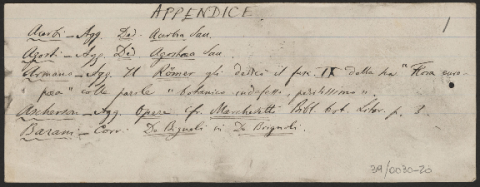 APPENDICE.
1
Acerbi – Agg. Ded. Acerbia Sav.
Agosti – Agg. Ded. Agostaea Sav.
Armano – Agg. Il Römer gli dedicò il fasc. IX della sua "Flora euro-
paea" colle parole "botanico indefesso, peritissimo".
Ascherson – Agg. Opere cfr. Marchesetti Bibl. bot. Litor. p. 3.
Barani – Corr. De Brignoli in De Brignoli.
39/0030-20